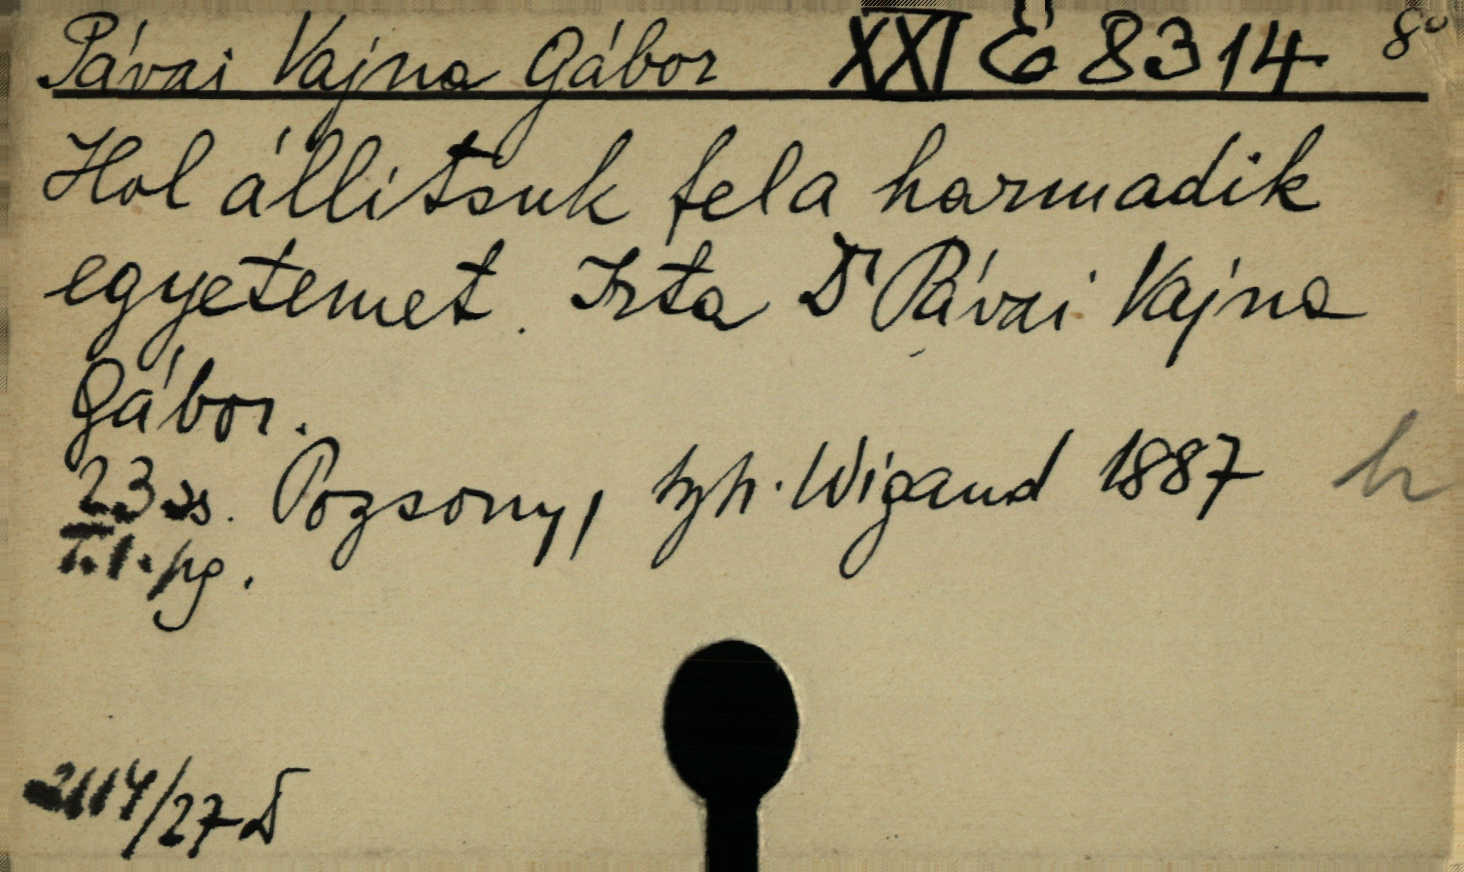 Pávai Vajna Gábor XXI É 8314 8°
Hol állítsuk fel a harmadik
egyetemet. Irta Dr Pávai Vajna
Gábor.
23 ss. Pozsony, typ. Wigand 1887 h
T.1.pg.
2114/27